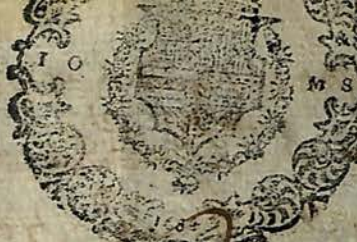 I O
M S